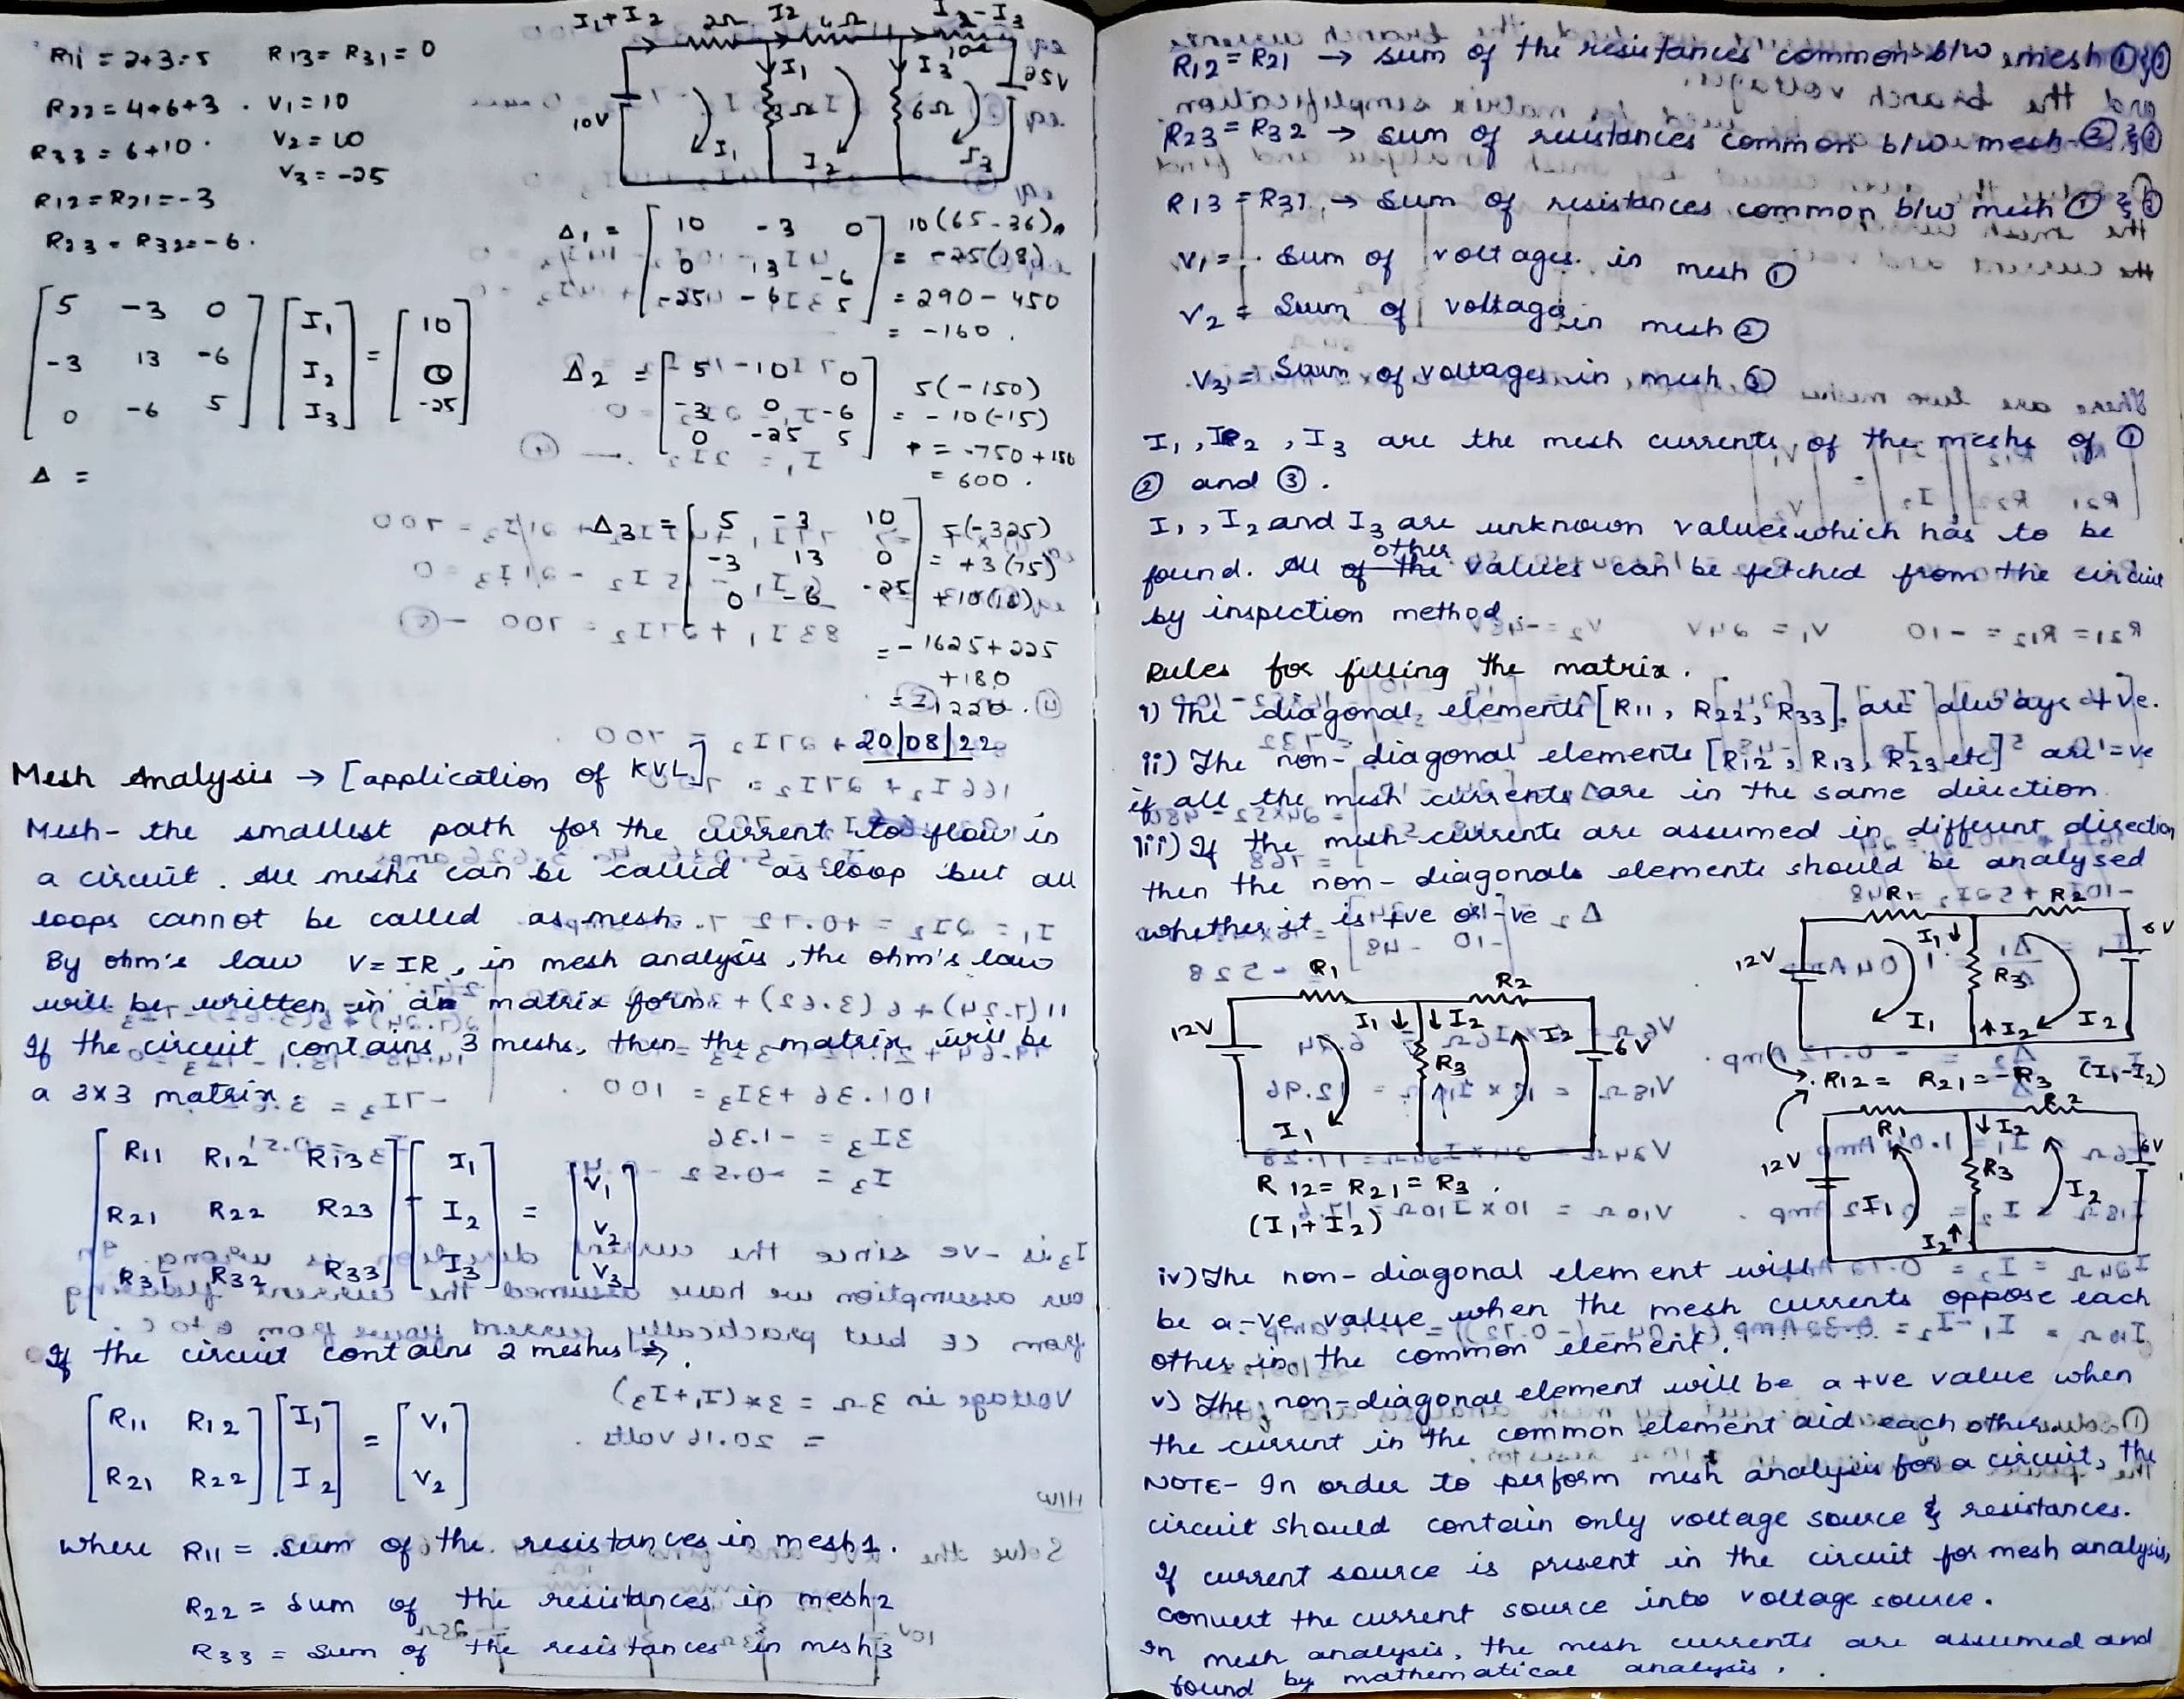 R11 = 2+3=5 R13= R31 = 0
R22 = 4+6+3 . V1 = 10
R33 = 6+10 . V2 = 10
V3 = -25
R12 = R21 = -3
R23 = R32 = -6 .
I1+I2 2Ω I2 4Ω I2-I3
10Ω
I1 I3 25V
10V 3Ω 6Ω
I1 I2 I3
[5 -3 0] [I1] = [10]
[-3 13 -6] [I2] [0]
[0 -6 5] [I3] [-25]
Δ =
Δ1 = [10 -3 0] 10(65-36)
[0 13 -6] = -25(18)
[-25 -6 5] = 290 - 450
= -160 .
Δ2 = [5 -10 0] 5(-150)
[-3 0 -6] = -10(-15)
[0 -25 5] = -750 + 150
= 600 .
Δ3 = [5 -3 10] 5(-325)
[-3 13 0] = +3(75)
[0 -6 -25] +10(18)
= -1625+225
+180
= 1220 .
20/08/22
Mesh Analysis → [application of KVL]
Mesh - the smallest path for the current to flow in
a circuit . All meshs can be called as loop but all
loops cannot be called as mesh.
By ohm's law V= IR , in mesh analysis , the ohm's law
will be written in a matrix form.
If the circuit contains 3 meshs, then the matrix will be
a 3x3 matrix.
[R11 R12 R13] [I1] = [V1]
[R21 R22 R23] [I2] [V2]
[R31 R32 R33] [I3] [V3]
If the circuit contains 2 meshes ⇒.
[R11 R12] [I1] = [V1]
[R21 R22] [I2] [V2]
where R11 = sum of the resistances in mesh 1 .
R22 = sum of the resistances in mesh 2
R33 = sum of the resistances in mesh 3
R12 = R21 → sum of the resistances common b/w mesh ① & ②
R23 = R32 → sum of resistances common b/w mesh ② & ③
R13 = R31 → sum of resistances common b/w mesh ① & ③
V1 = sum of voltages in mesh ①
V2 = Sum of voltages in mesh ②
V3 = Sum of voltages in mesh ③
I1 , I2 , I3 are the mesh currents of the meshs of ①
② and ③ .
I1 , I2 and I3 are unknown values which has to be
other
found. All of the values can be fetched from the circuit
by inspection method.
Rules for filling the matrix .
i) The diagonal elements [R11, R22, R33] are always +ve.
ii) The non-diagonal elements [R12, R13, R23 etc] are -ve
if all the mesh currents are in the same direction
iii) If the mesh currents are assumed in different direction
then the non-diagonals elements should be analysed
whether it is +ve or -ve
R1 R2
12V I1 I2 I2 6V
R3
I1
R12 = R21 = R3 .
(I1+I2)
R1 R2
12V I1 6V
R3
I1 I2 I2
R12 = R21 = -R3 (I1-I2)
R1 R2
12V I2 6V
R3
I1 I2
I2
iv) The non-diagonal element will
be a -ve value when the mesh currents oppose each
other in the common element .
v) The non-diagonal element will be a +ve value when
the current in the common element aid each other.
NOTE- In order to perform mesh analysis for a circuit, the
circuit should contain only voltage source & resistances.
If current source is present in the circuit for mesh analysis,
convert the current source into voltage source.
In mesh analysis, the mesh currents are assumed and
found by mathematical analysis .